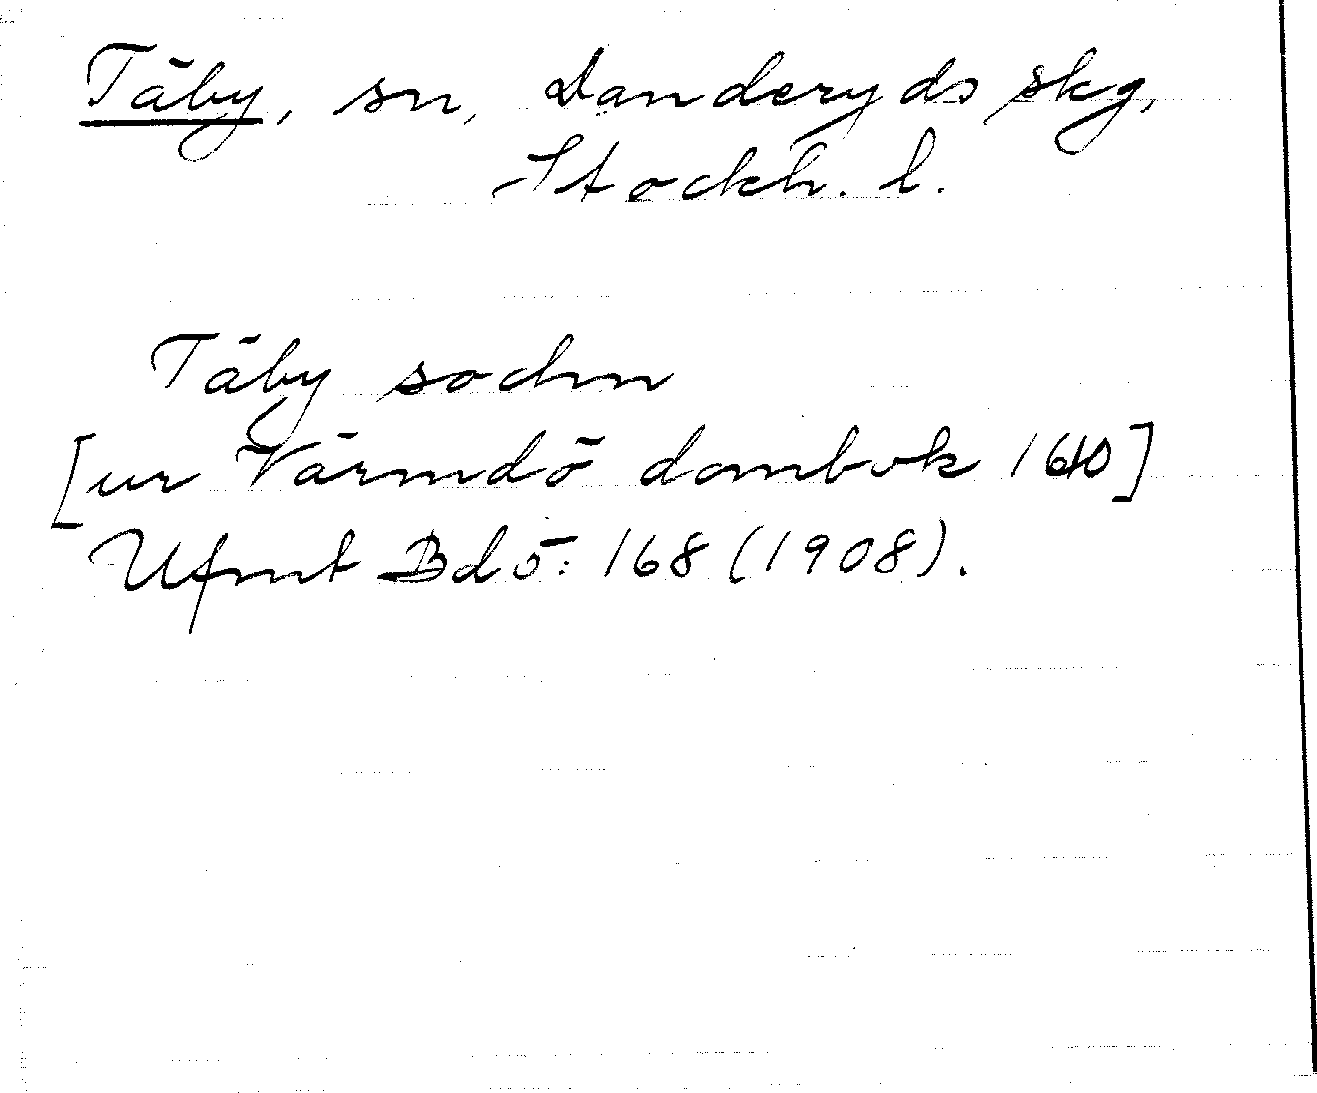 Täby, sn, Danderyds skg,
Stockh. l.
Täby sochn
[ur Värmdö dombok 1640]
Ufmt Bd 5: 168 (1908).